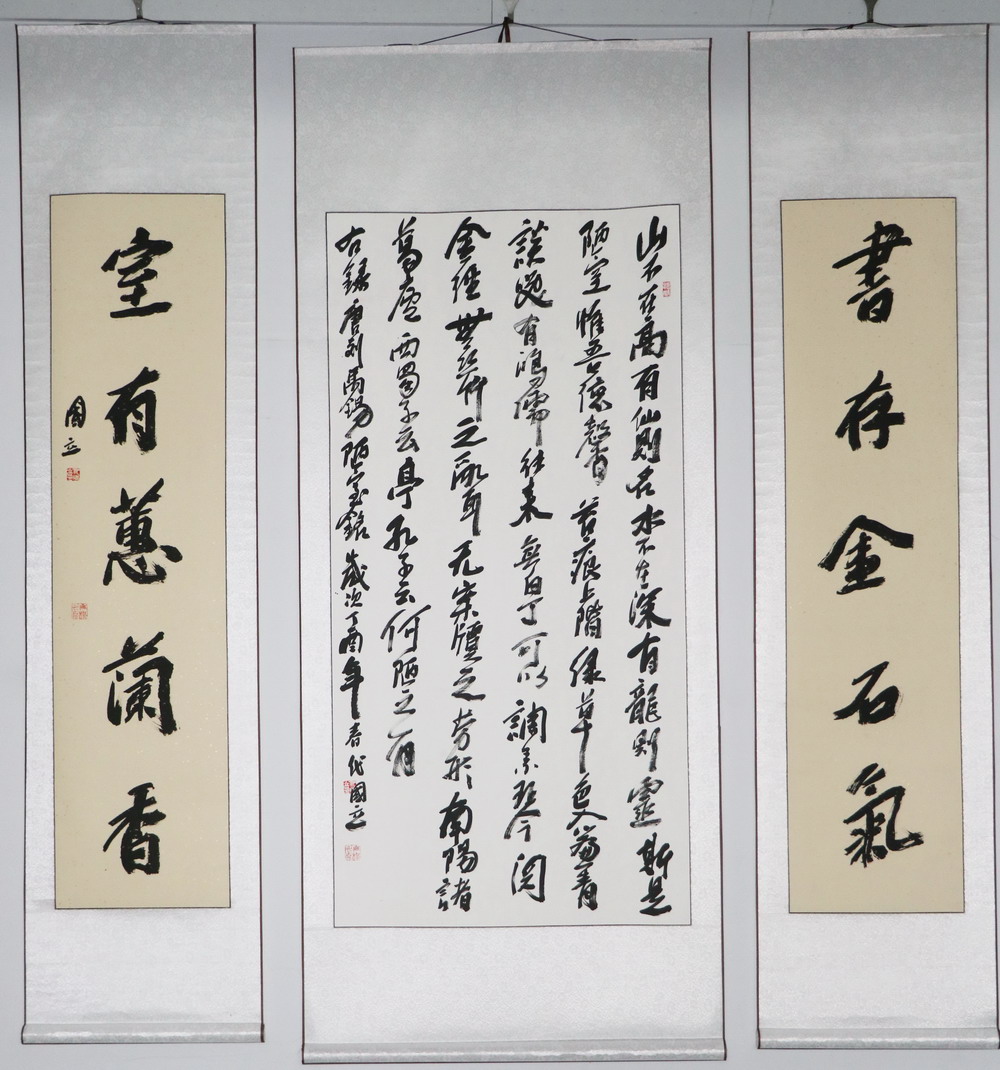 書存金石氣
山不在高有仙則名水不在深有龍則靈斯是
陋室惟吾德馨苔痕上階绿草色入簾青
談笑有鴻儒往来無白丁可以調素琴阅
金經無丝竹之亂耳无案牘之劳形南陽諸
葛廬西蜀子云亭孔子云何陋之有
右録唐刘禹锡陋室銘歲次丁酉年春代國立
室有蕙蘭香
國立